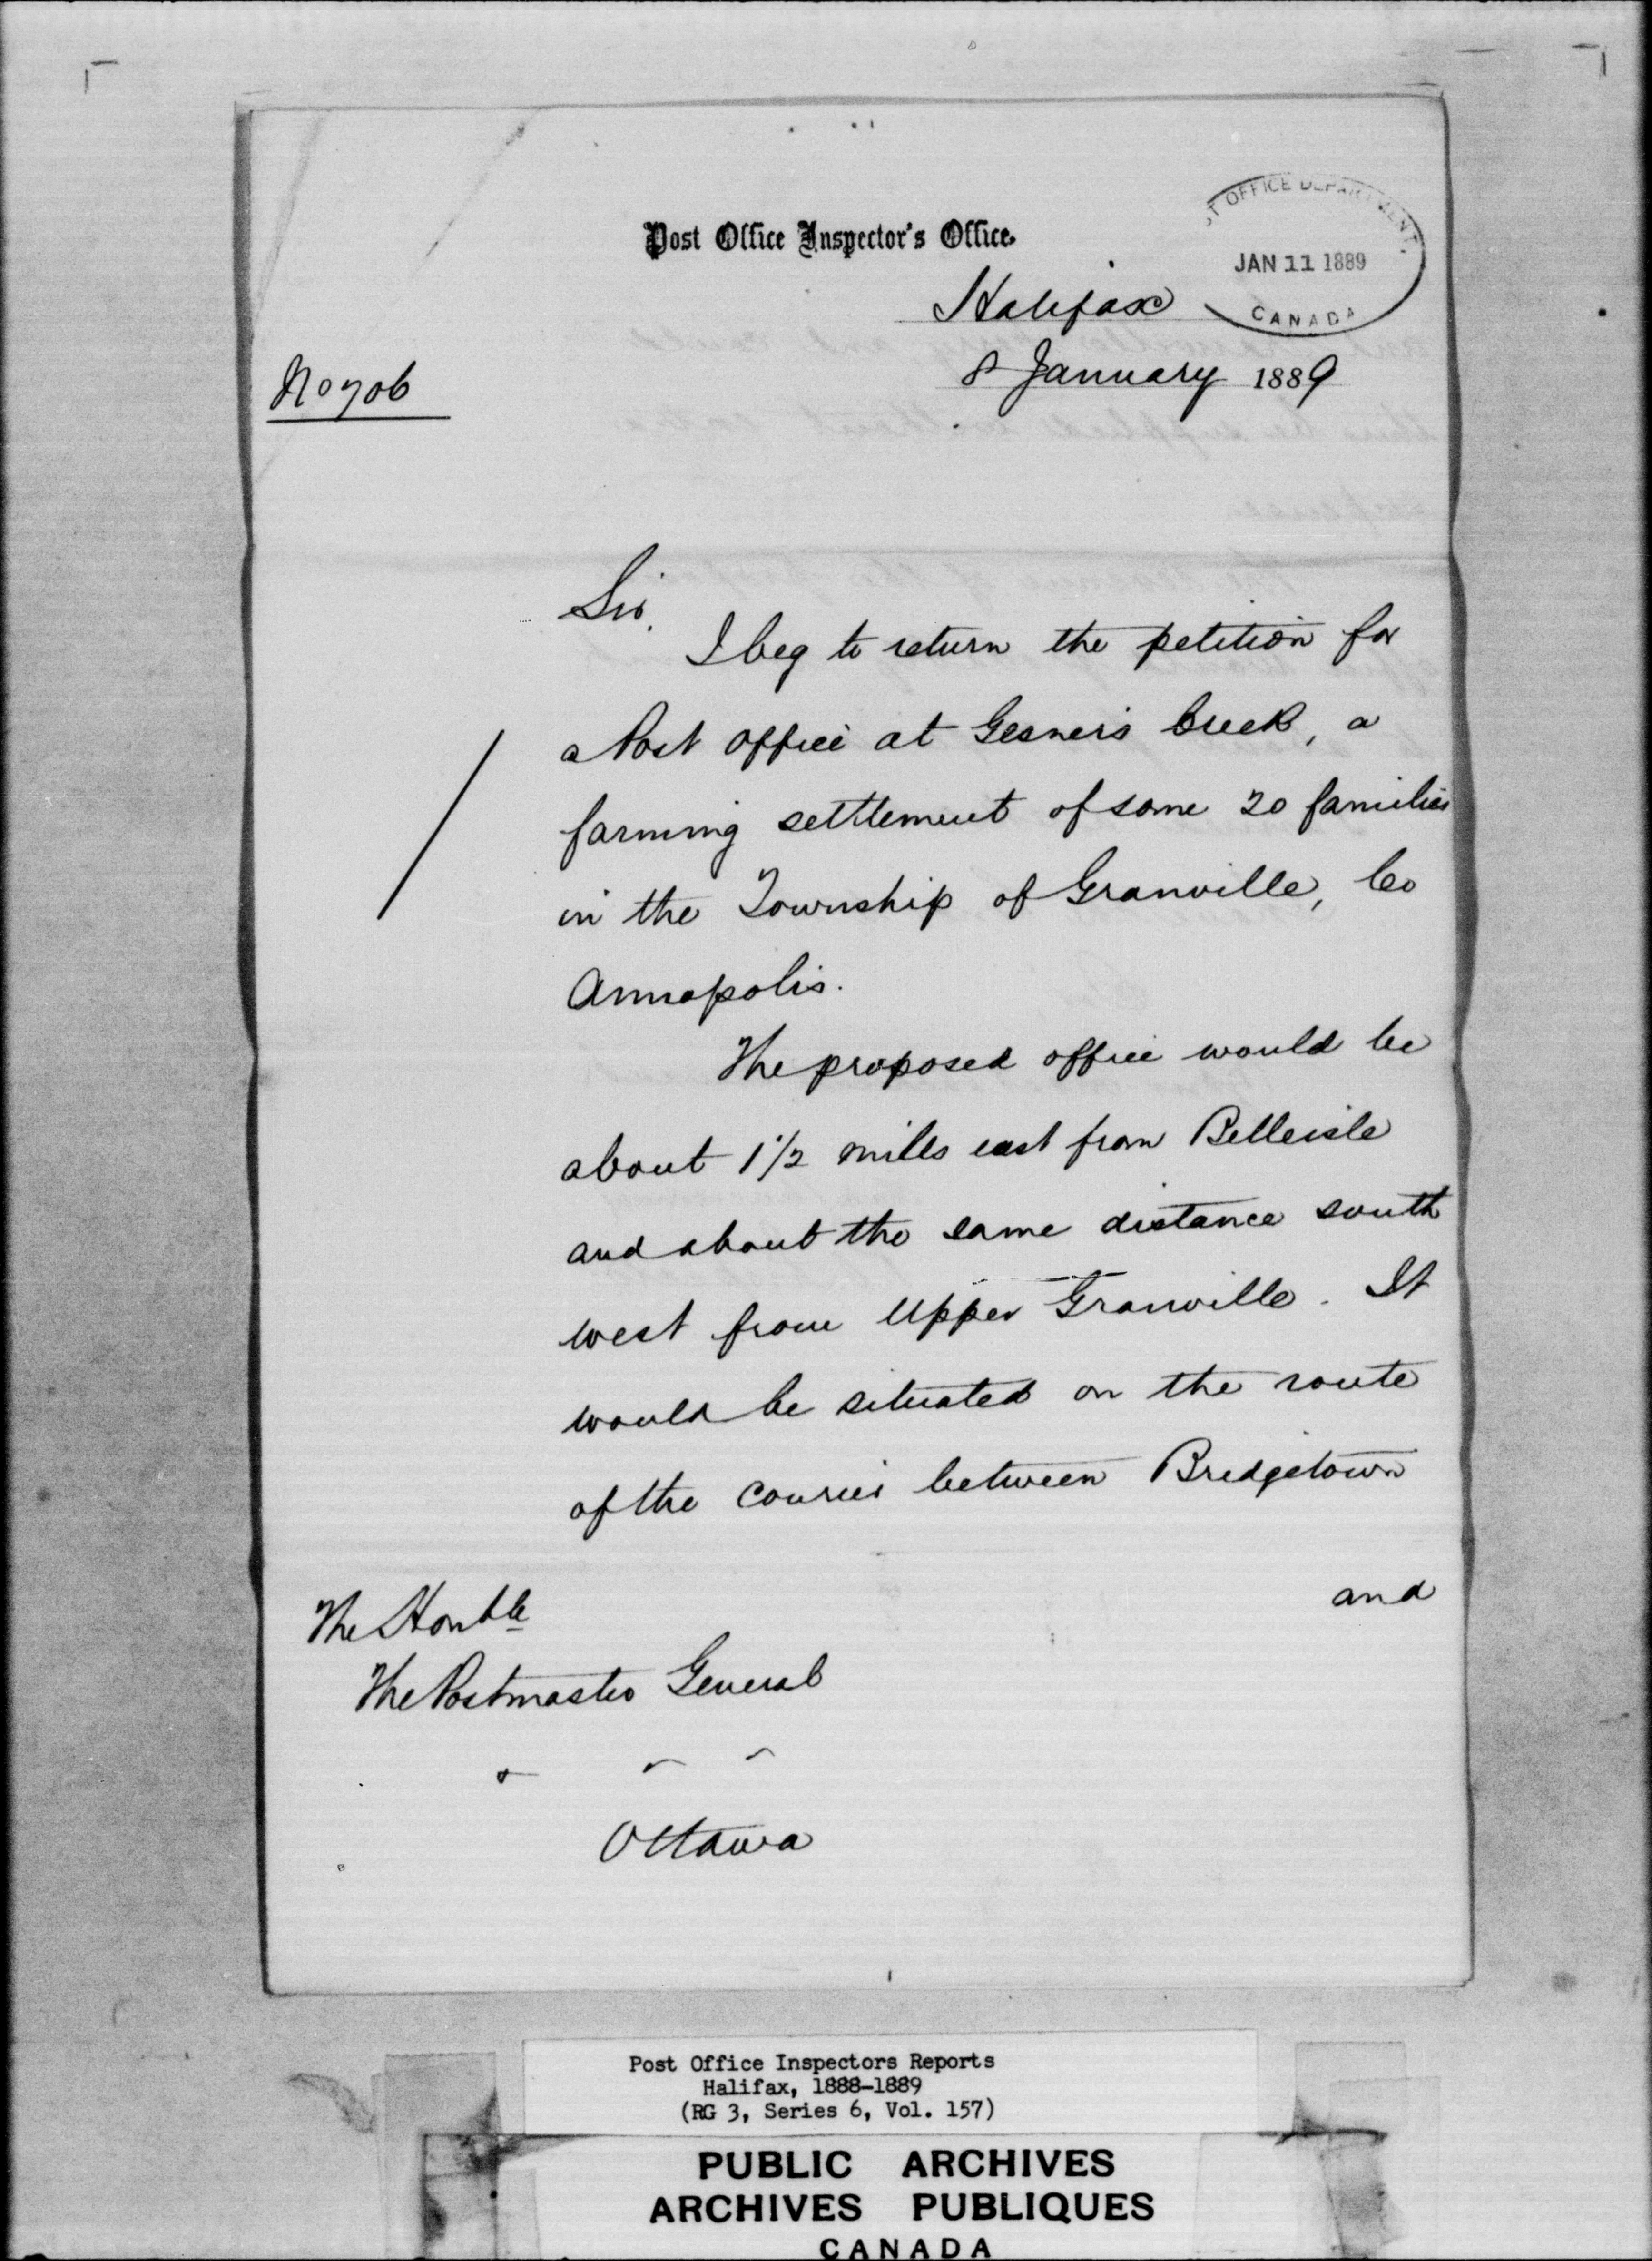 Post Office Inspector's Office.
POST OFFICE DEPARTMENT.
JAN 11 1889
CANADA
Halifax
8 January 1889
No 706
Sir,
I beg to return the petition for
a Post Office at Gesner's Creek, a
farming settlement of some 20 families
in the Township of Granville, Co
Annapolis.
The proposed office would be
about 1 1/2 miles east from Belleisle
and about the same distance south
west from Upper Granville. It
would be situated on the route
of the courier between Bridgetown
and
The Honble
The Postmaster General
Ottawa
Post Office Inspectors Reports
Halifax, 1888-1889
(RG 3, Series 6, Vol. 157)
PUBLIC ARCHIVES
ARCHIVES PUBLIQUES
CANADA